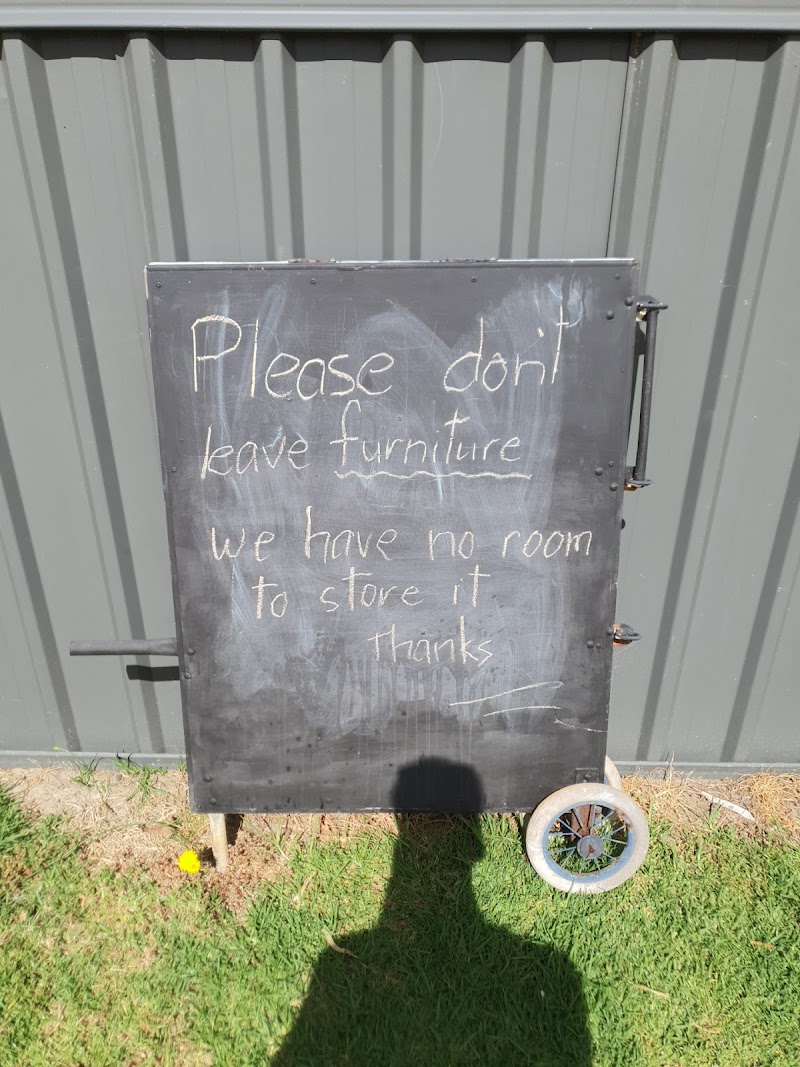 Please don't
leave furniture
we have no room
to store it
thanks